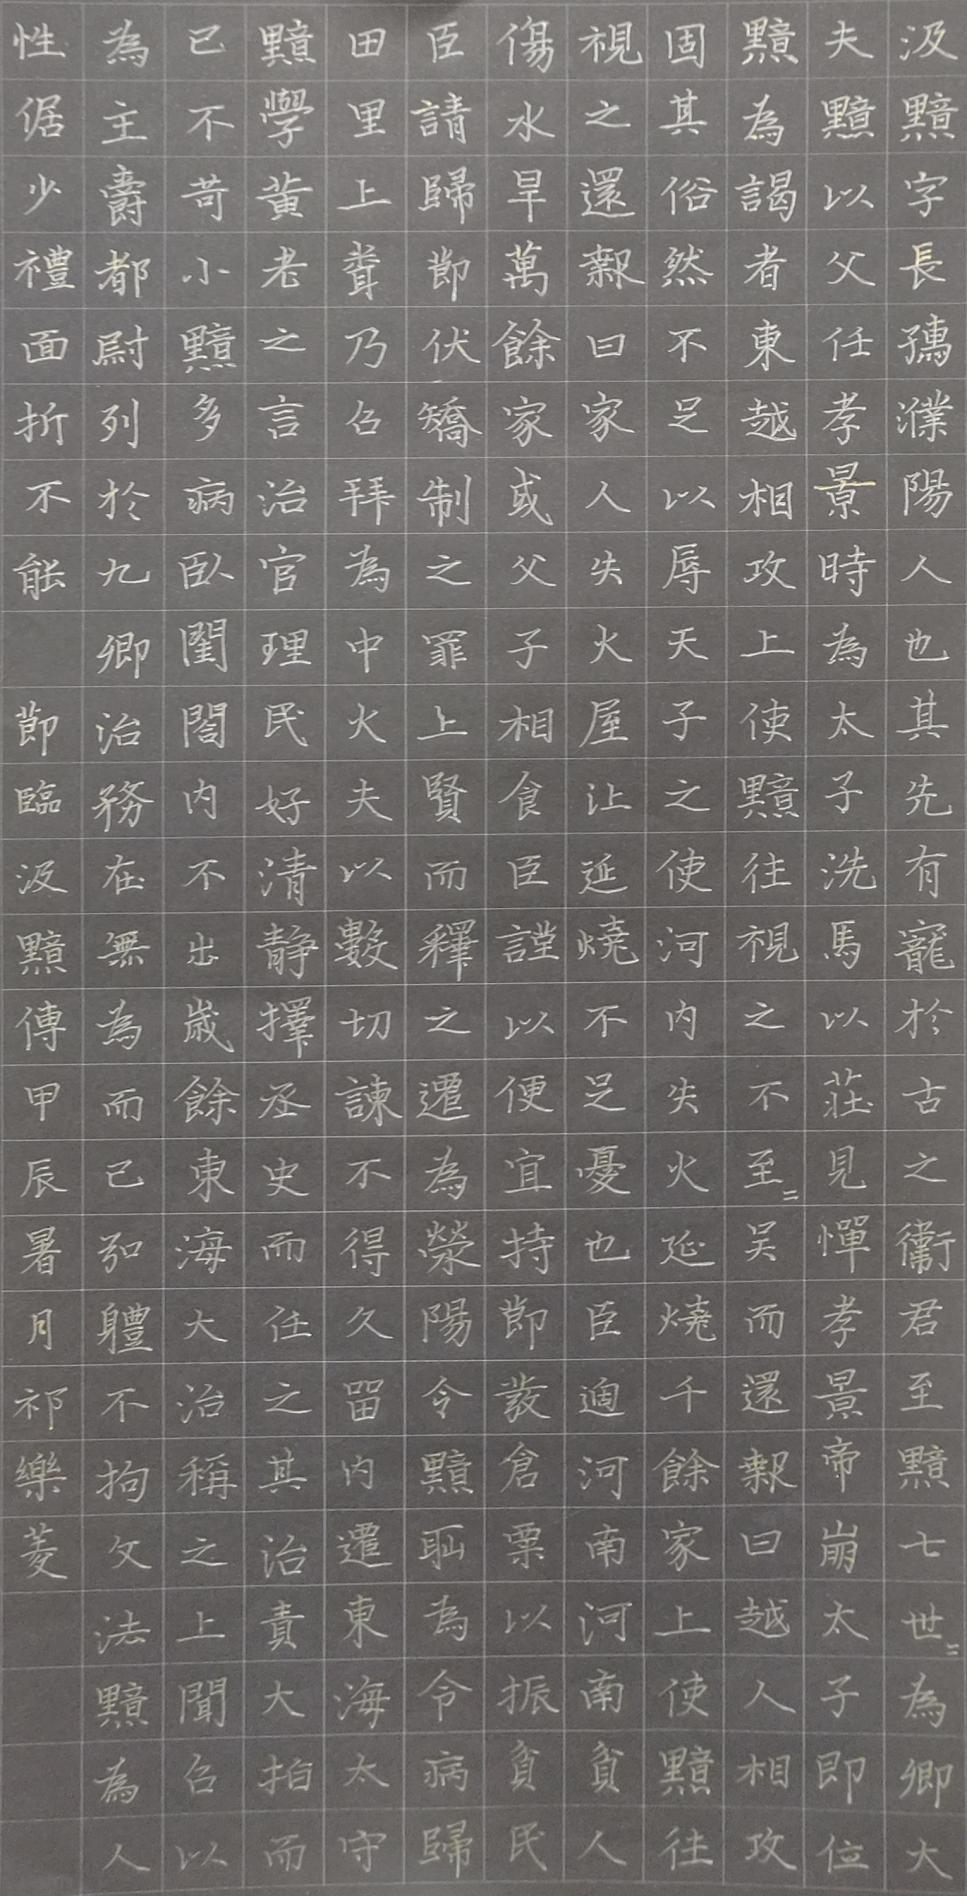 汲黯字長孺濮陽人也其先有寵於古之衞君至黯七世〻為卿大
夫黯以父任孝景時為太子洗馬以莊見憚孝景帝崩太子即位
黯為謁者東越相攻上使黯往視之不至〻吴而還報曰越人相攻
固其俗然不足以辱天子之使河内失火延燒千餘家上使黯往
視之還報曰家人失火屋比延燒不足憂也臣適河南河南貧人
傷水旱萬餘家或父子相食臣謹以便宜持節發倉粟以振貧民
臣請歸節伏矯制之罪上賢而釋之遷為滎陽令黯恥為令病歸
田里上聞乃召拜為中大夫以數切諫不得久留内遷東海太守
黯學黃老之言治官理民好清靜擇丞史而任之其治責大指而
已不苛小黯多病臥閨閤内不出歲餘東海大治稱之上聞召以
為主爵都尉列於九卿治務在無為而已弘軆不拘文法黯為人
性倨少禮面折不能 節臨汲黯傳甲辰暑月祁樂菱